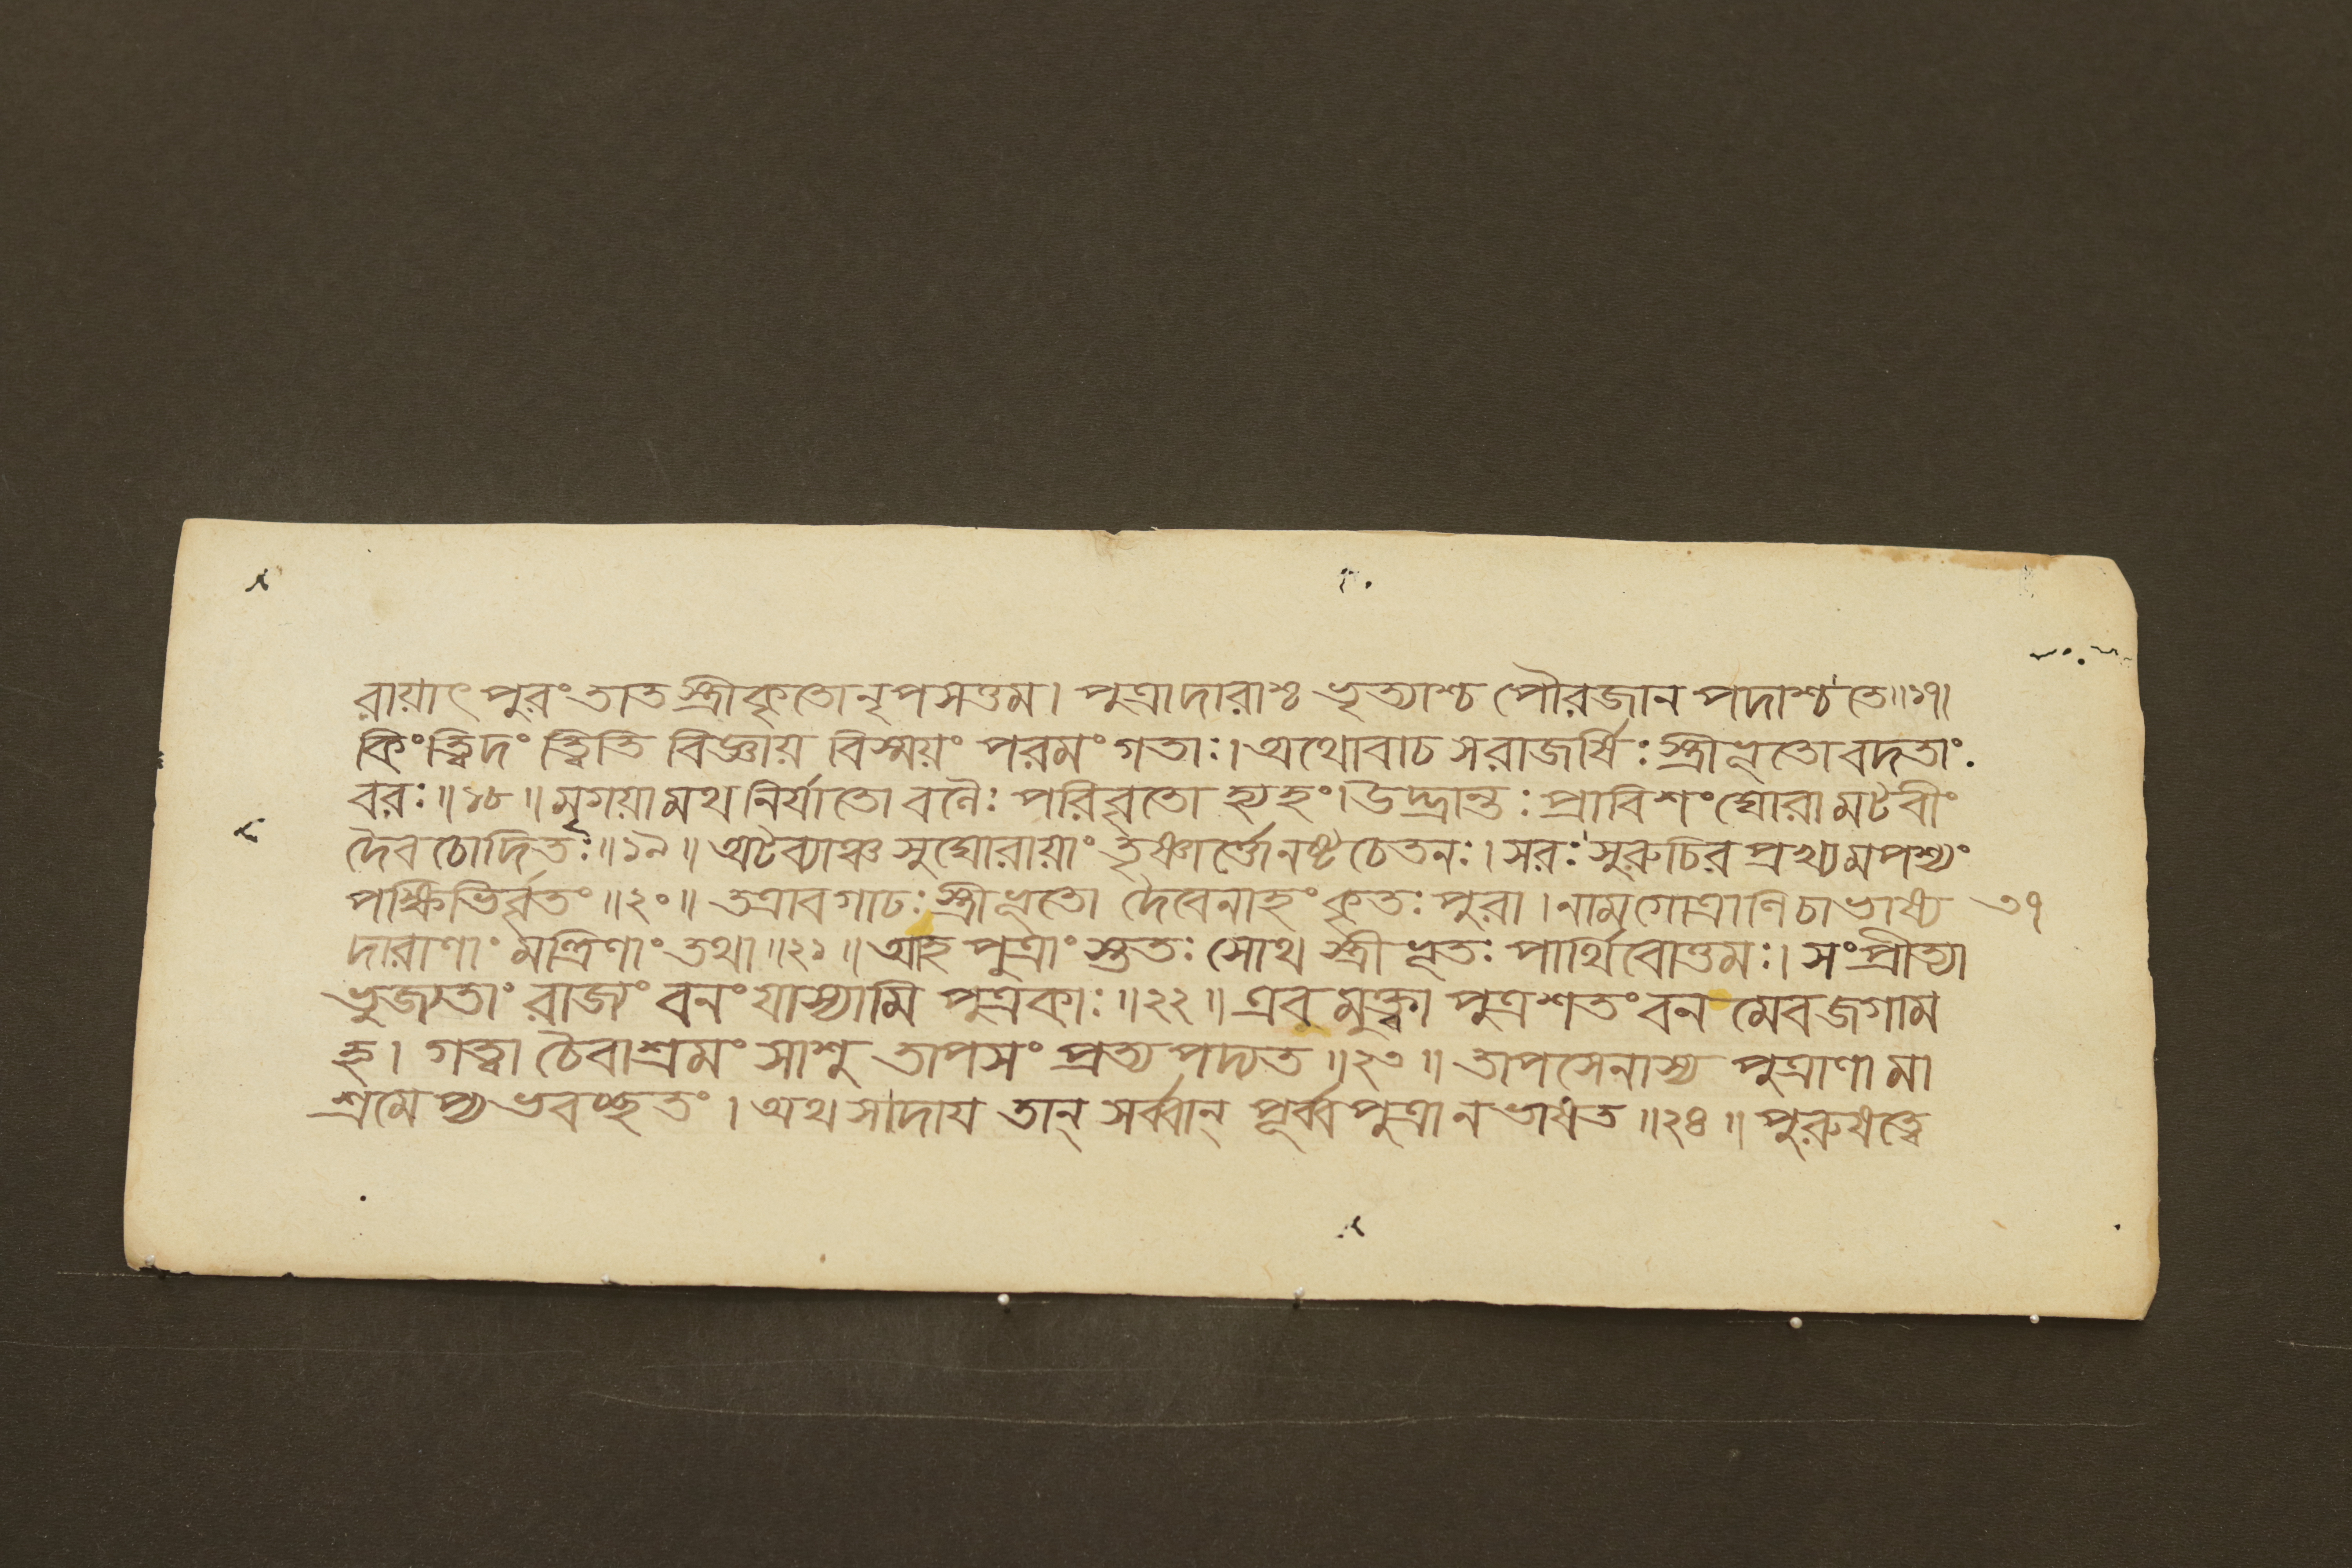 রায়াৎ পুরং তাত স্ত্রীকৃতো নৃপসত্তম। পুত্রাদারাশ্চ ভৃত্যাশ্চ পৌরজান পদাশ্চ তে॥১৭।
কিং ত্বিদং ত্বিতি বিজ্ঞায় বিস্ময়ং পরমং গতাঃ। অথোবাচ সরাজর্ষিঃ স্ত্রীভূতো বদতাং
বরঃ॥১৮॥ মৃগয়ামথ নির্যাতো বলৈঃ পরিবৃতো হ্যহং। উদ্ভ্রান্তঃ প্রাবিশং ঘোরামটবীং
দৈবচোদিতঃ॥১৯॥ অটব্যাঞ্চ সুঘোরায়াং তৃষ্ণার্ত্তো নষ্টচেতনঃ। সরঃ সুরুচির প্রখ্যমপশ্যং
পক্ষিভির্বৃতং॥২০॥ তত্রাবগাঢঃ স্ত্রীভূতো দৈবেনাহং কৃতঃ পুরা। নামগোত্রাণি চাভাষ্য ৩৭
দারাণাং মন্ত্রিণাং তথা॥২১॥ আহ পুত্রাং স্তুতঃ সোথ স্ত্রীভূতঃ পার্থিবোত্তমঃ। সংপ্রীত্যা
ভুজ্যতাং রাজ্যং বনং যাস্যামি পুত্রকাঃ॥২২॥ এবমুক্ত্বা পুত্রশতং বন মেবজগাম
হ। গত্বা চৈবাশ্রমং সাশু তাপসং প্রত্যপদ্যত॥২৩॥ তাপসেনাস্য পুত্রাণামা
শ্রমেষ্বভবচ্ছতং। অথ সাদায তান্ সর্ব্বান্ পূর্ব্বপুত্রানভাষত॥২৪॥ পুরুষত্বে